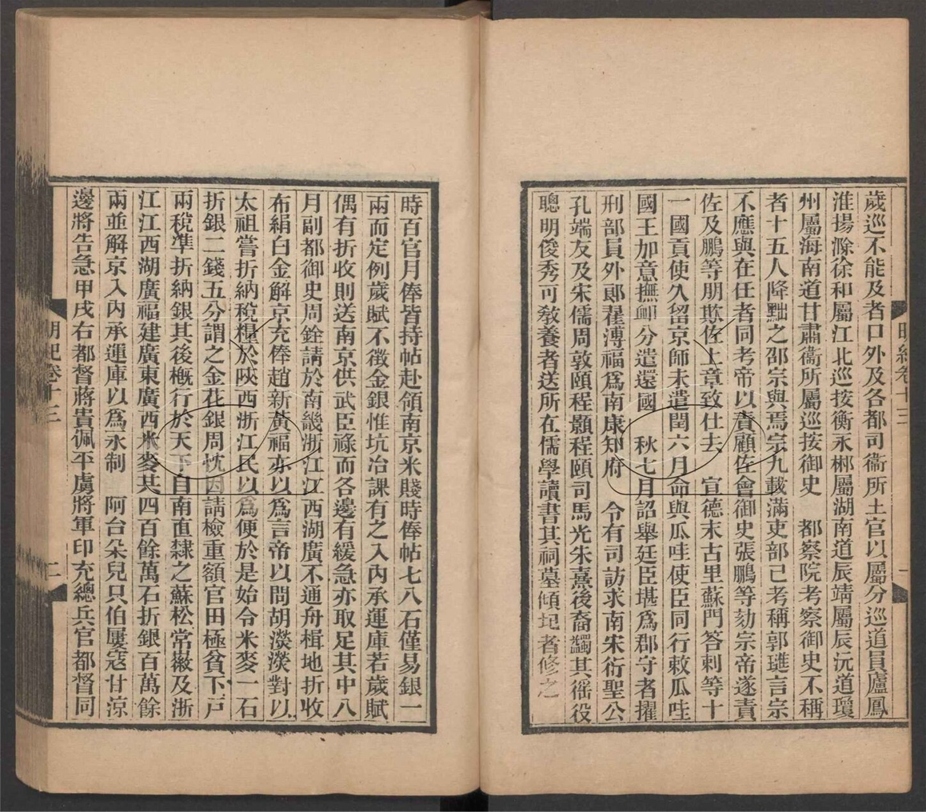 歲巡不能及者口外及各都司衞所土官以屬分巡道員廬鳳
淮揚滁徐和屬江北巡按衡永郴屬湖南道辰靖屬辰沅道瓊
州屬海南道甘肅衞所屬巡按御史　都察院考察御史不稱
者十五人降黜之邵宗與焉宗九載滿吏部已考稱郭璡言宗
不應與在任者同考帝以責顧佐會御史張鵬等劾宗帝遂責
佐及鵬等朋欺佐上章致仕去　宣德末古里蘇門答剌等十
一國貢使久留京師未遣閏六月命與瓜哇使臣同行敕瓜哇
國王加意撫卹分遣還國　秋七月詔舉廷臣堪爲郡守者擢
刑部員外郎翟溥福爲南康知府　令有司訪求南宋衍聖公
孔端友及宋儒周敦頤程顥程頤司馬光朱熹後裔蠲其徭役
聰明俊秀可敎養者送所在儒學讀書其祠墓傾圮者修之
明紀卷十三　一
時百官月俸皆持帖赴領南京米賤時俸帖七八石僅易銀一
兩而定例歲賦不徵金銀惟坑冶課有之入內承運庫若歲賦
偶有折收則送南京供武臣祿而各邊有緩急亦取足其中八
月副都御史周銓請於南畿浙江江西湖廣不通舟楫地折收
布絹白金解京充俸趙新黃福亦以爲言帝以問胡濙濙對以
太祖嘗折納稅糧於陝西浙江民以爲便於是始令米麥一石
折銀二錢五分謂之金花銀周忱因請檢重額官田極貧下戶
兩稅準折納銀其後槪行於天下自南直隸之蘇松常徽及浙
江江西湖廣福建廣東廣西米麥共四百餘萬石折銀百萬餘
兩並解京入內承運庫以爲永制　阿台朵兒只伯屢寇甘涼
邊將告急甲戌右都督蔣貴佩平虜將軍印充總兵官都督同
明紀卷十三　二